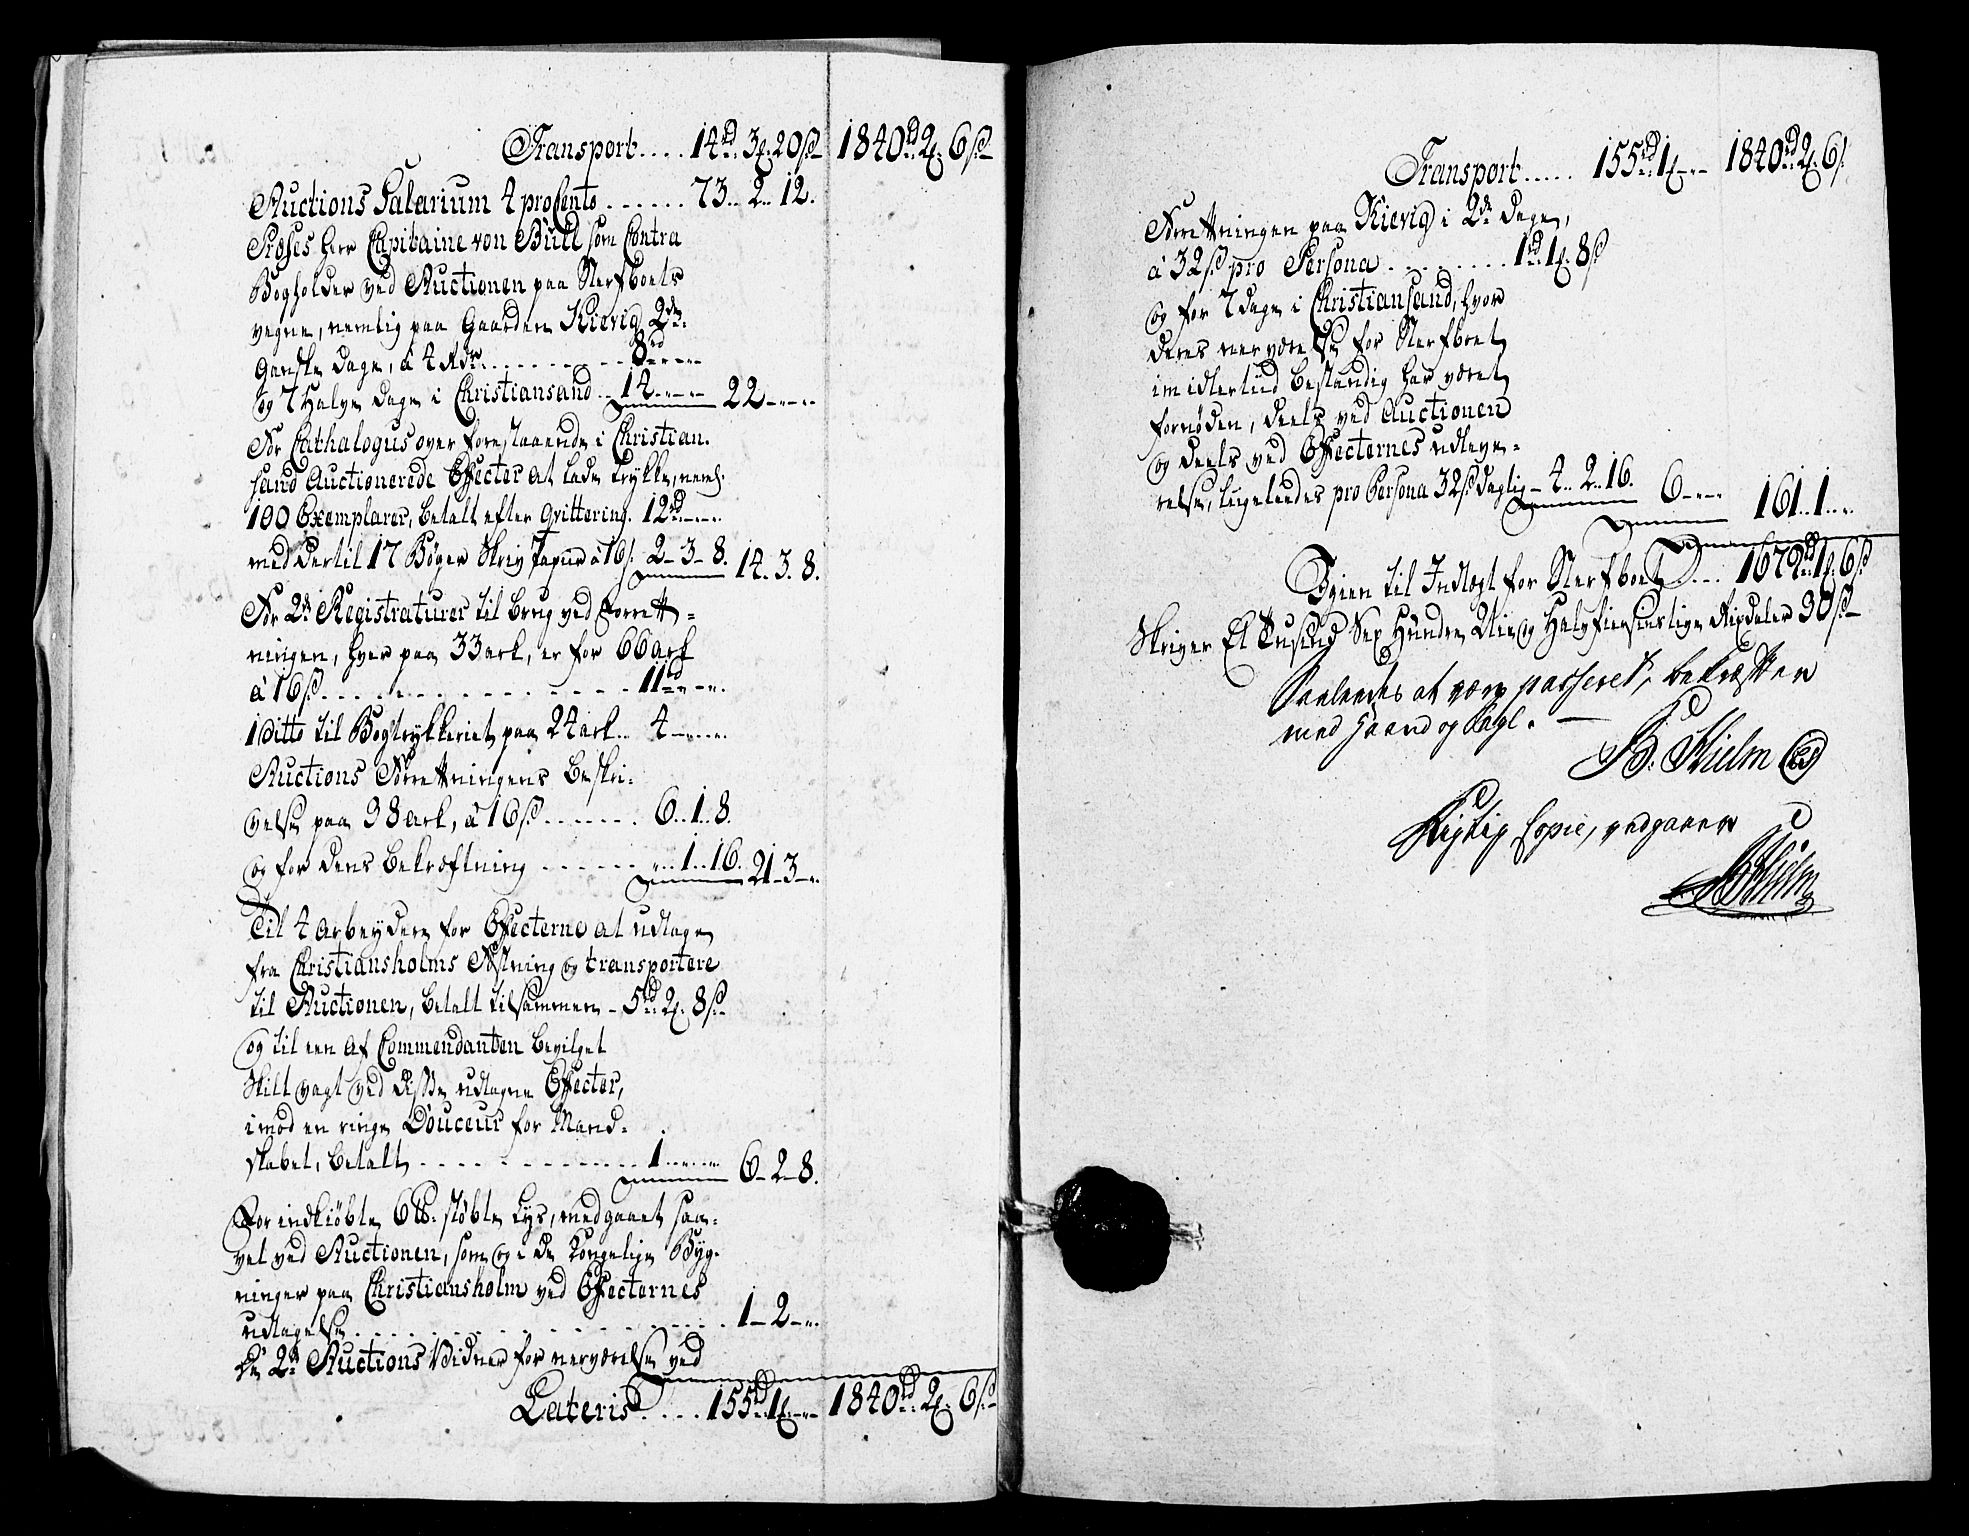 Transport.... 14rd. 3f. 20sz 1840rd. 2f. 6sz
Auctions Salarium 4 proCento ...... 73.. 2.. 12.
Roses herr Capitaine von Büll som Contra
Bogholder ved Auctionen paa Sterfboets
vegne, nemlig paa Gaarden Kievig 2de
Ganske Dage, à 4 Rdr. ....... 8rd
og 7 Halve Dage i Christiansand .. 14 22
For Cathalogus over forestaaende i Christian.
sand Auctionerede Effecter at lade trykke, neml.
100 Exemplarer, betalt efter Qvittering. 12rd
med dertil 17 Bøger Skriv Papiir à 16s. 2-3-8. 14. 3. 8.
For 2de Registraturer til brug ved Forrett-
ningen, hver paa 33 ark, er for 66 ark
à 16s ........ 11rd
1 ditto til Bogtrykkeriet paa 24 ark.. 4
Auctions Forretningens beskri-
velse paa 38 ark, à 16s ...... 6.. 1.. 8.
og for dens bekræftning ...... 1.. 16. 21-3-
Til 4 Arbeydere for Effecterne at udtage
fra Christiansholms Fæstning og transportere
til Auctionen, betalt tilsammen - 5rd. 2f. 8s
og til een af Commendanten bevilget
Skiltvagt ved disse udtagne Effecter,
imod en ringe Douceur for Mand-
skabet, betalt ........ 1 6-2-8.
For indkiøbte 6 lb. støbte Lys, medgaaet saa-
vel ved Auctionen, som og i De Kongelige Byg-
ninger paa Christiansholm ved Effecternes
udtagelse ........ 1-2-
De 2de Auctions Vidner for nerværelse ved
Lateris.... 155rd. 1f. 1840rd. 2f. 6s
Transport..... 155rd. 1f. 1840rd. 2f. 6s.
Forretningen paa Kievig i 2de Dage,
à 32s pro Persona ........ 1rd. 1f. 8s
og for 7 Dage i Christiansand, hvor
deres nerværelse for Sterfboet
imidlertiid bestandig har været
fornøden, deels ved Auctionen
og deels ved Effecternes udleve-
relse, ligeledes pro Persona 32s daglig - 4.. 2.. 16. 6 161.. 1
Igien til Indtægt for Sterfboet .... 1679rd. 1f. 6s
Skriver Et Tusind Sex Hundre Nie og Halvfiersinstive Rixdaler 30s
Saaledes at være passeret, bekræfter
med Haand og Segl.
B. Hielm
Rigtig Copie, vedgaaer
B Hielm